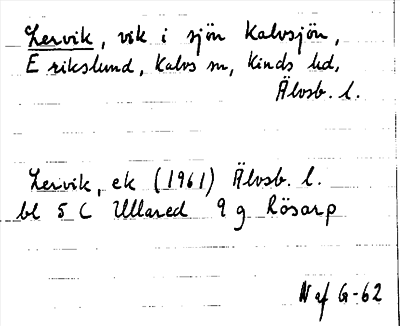 Lervik, vik i sjön Kalvsjön,
Erikslund, Kalvs sn, Kinds hd,
Älvsb. l.
Lervik, ek (1961) Älvsb. l.
bl 5 C Ullared 9 g Rösarp
N af G-62